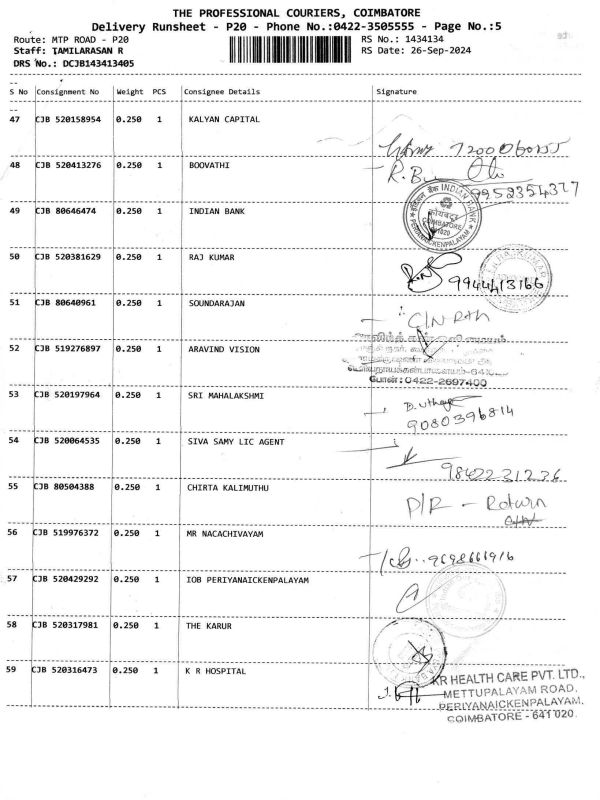 THE PROFESSIONAL COURIERS, COIMBATORE
Delivery Runsheet - P20 - Phone No.:0422-3505555 - Page No.:5
Route: MTP ROAD - P20
RS No.: 1434134
Staff: TAMILARASAN R
RS Date: 26-Sep-2024
DRS No.: DCJB143413405
S No Consignment No Weight PCS Consignee Details Signature
47 CJB 520158954 0.250 1 KALYAN CAPITAL
48 CJB 520413276 0.250 1 BOOVATHI
9952354327
49 CJB 80646474 0.250 1 INDIAN BANK
INDIAN BANK
कोयंबटूर
COIMBATORE
641020
PERIYANAICKENPALAYAM
50 CJB 520381629 0.250 1 RAJ KUMAR
9944413166
51 CJB 80640961 0.250 1 SOUNDARAJAN
52 CJB 519276897 0.250 1 ARAVIND VISION
போன்:0422-2697400
53 CJB 520197964 0.250 1 SRI MAHALAKSHMI
9080396814
54 CJB 520064535 0.250 1 SIVA SAMY LIC AGENT
9842231236
55 CJB 80504388 0.250 1 CHIRTA KALIMUTHU
D/R -
56 CJB 519976372 0.250 1 MR NACACHIVAYAM
9698661916
57 CJB 520429292 0.250 1 IOB PERIYANAICKENPALAYAM
58 CJB 520317981 0.250 1 THE KARUR
59 CJB 520316473 0.250 1 K R HOSPITAL
KR HEALTH CARE PVT. LTD.,
METTUPALAYAM ROAD,
PERIYANAICKENPALAYAM,
COIMBATORE - 641 020.